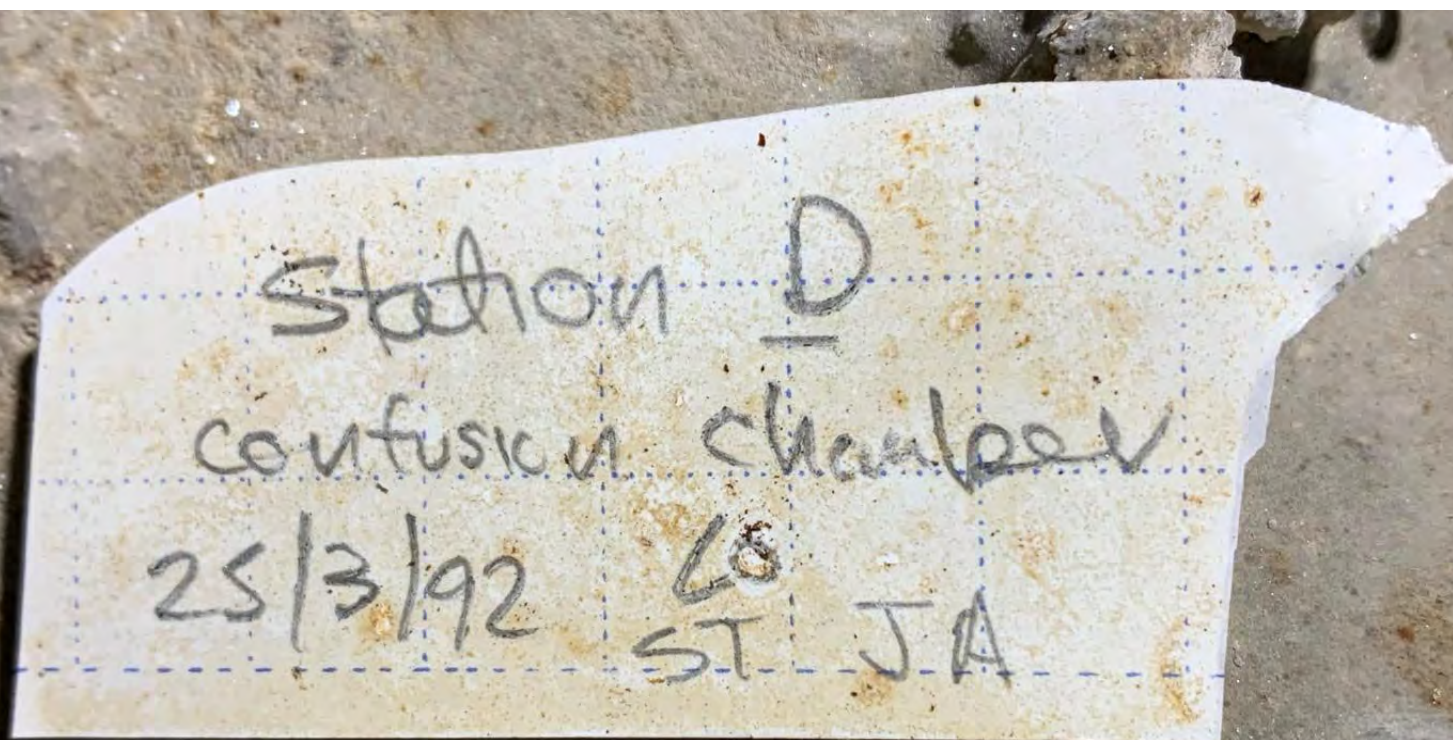 Station D
confusion chamber
25/3/92
ST JA